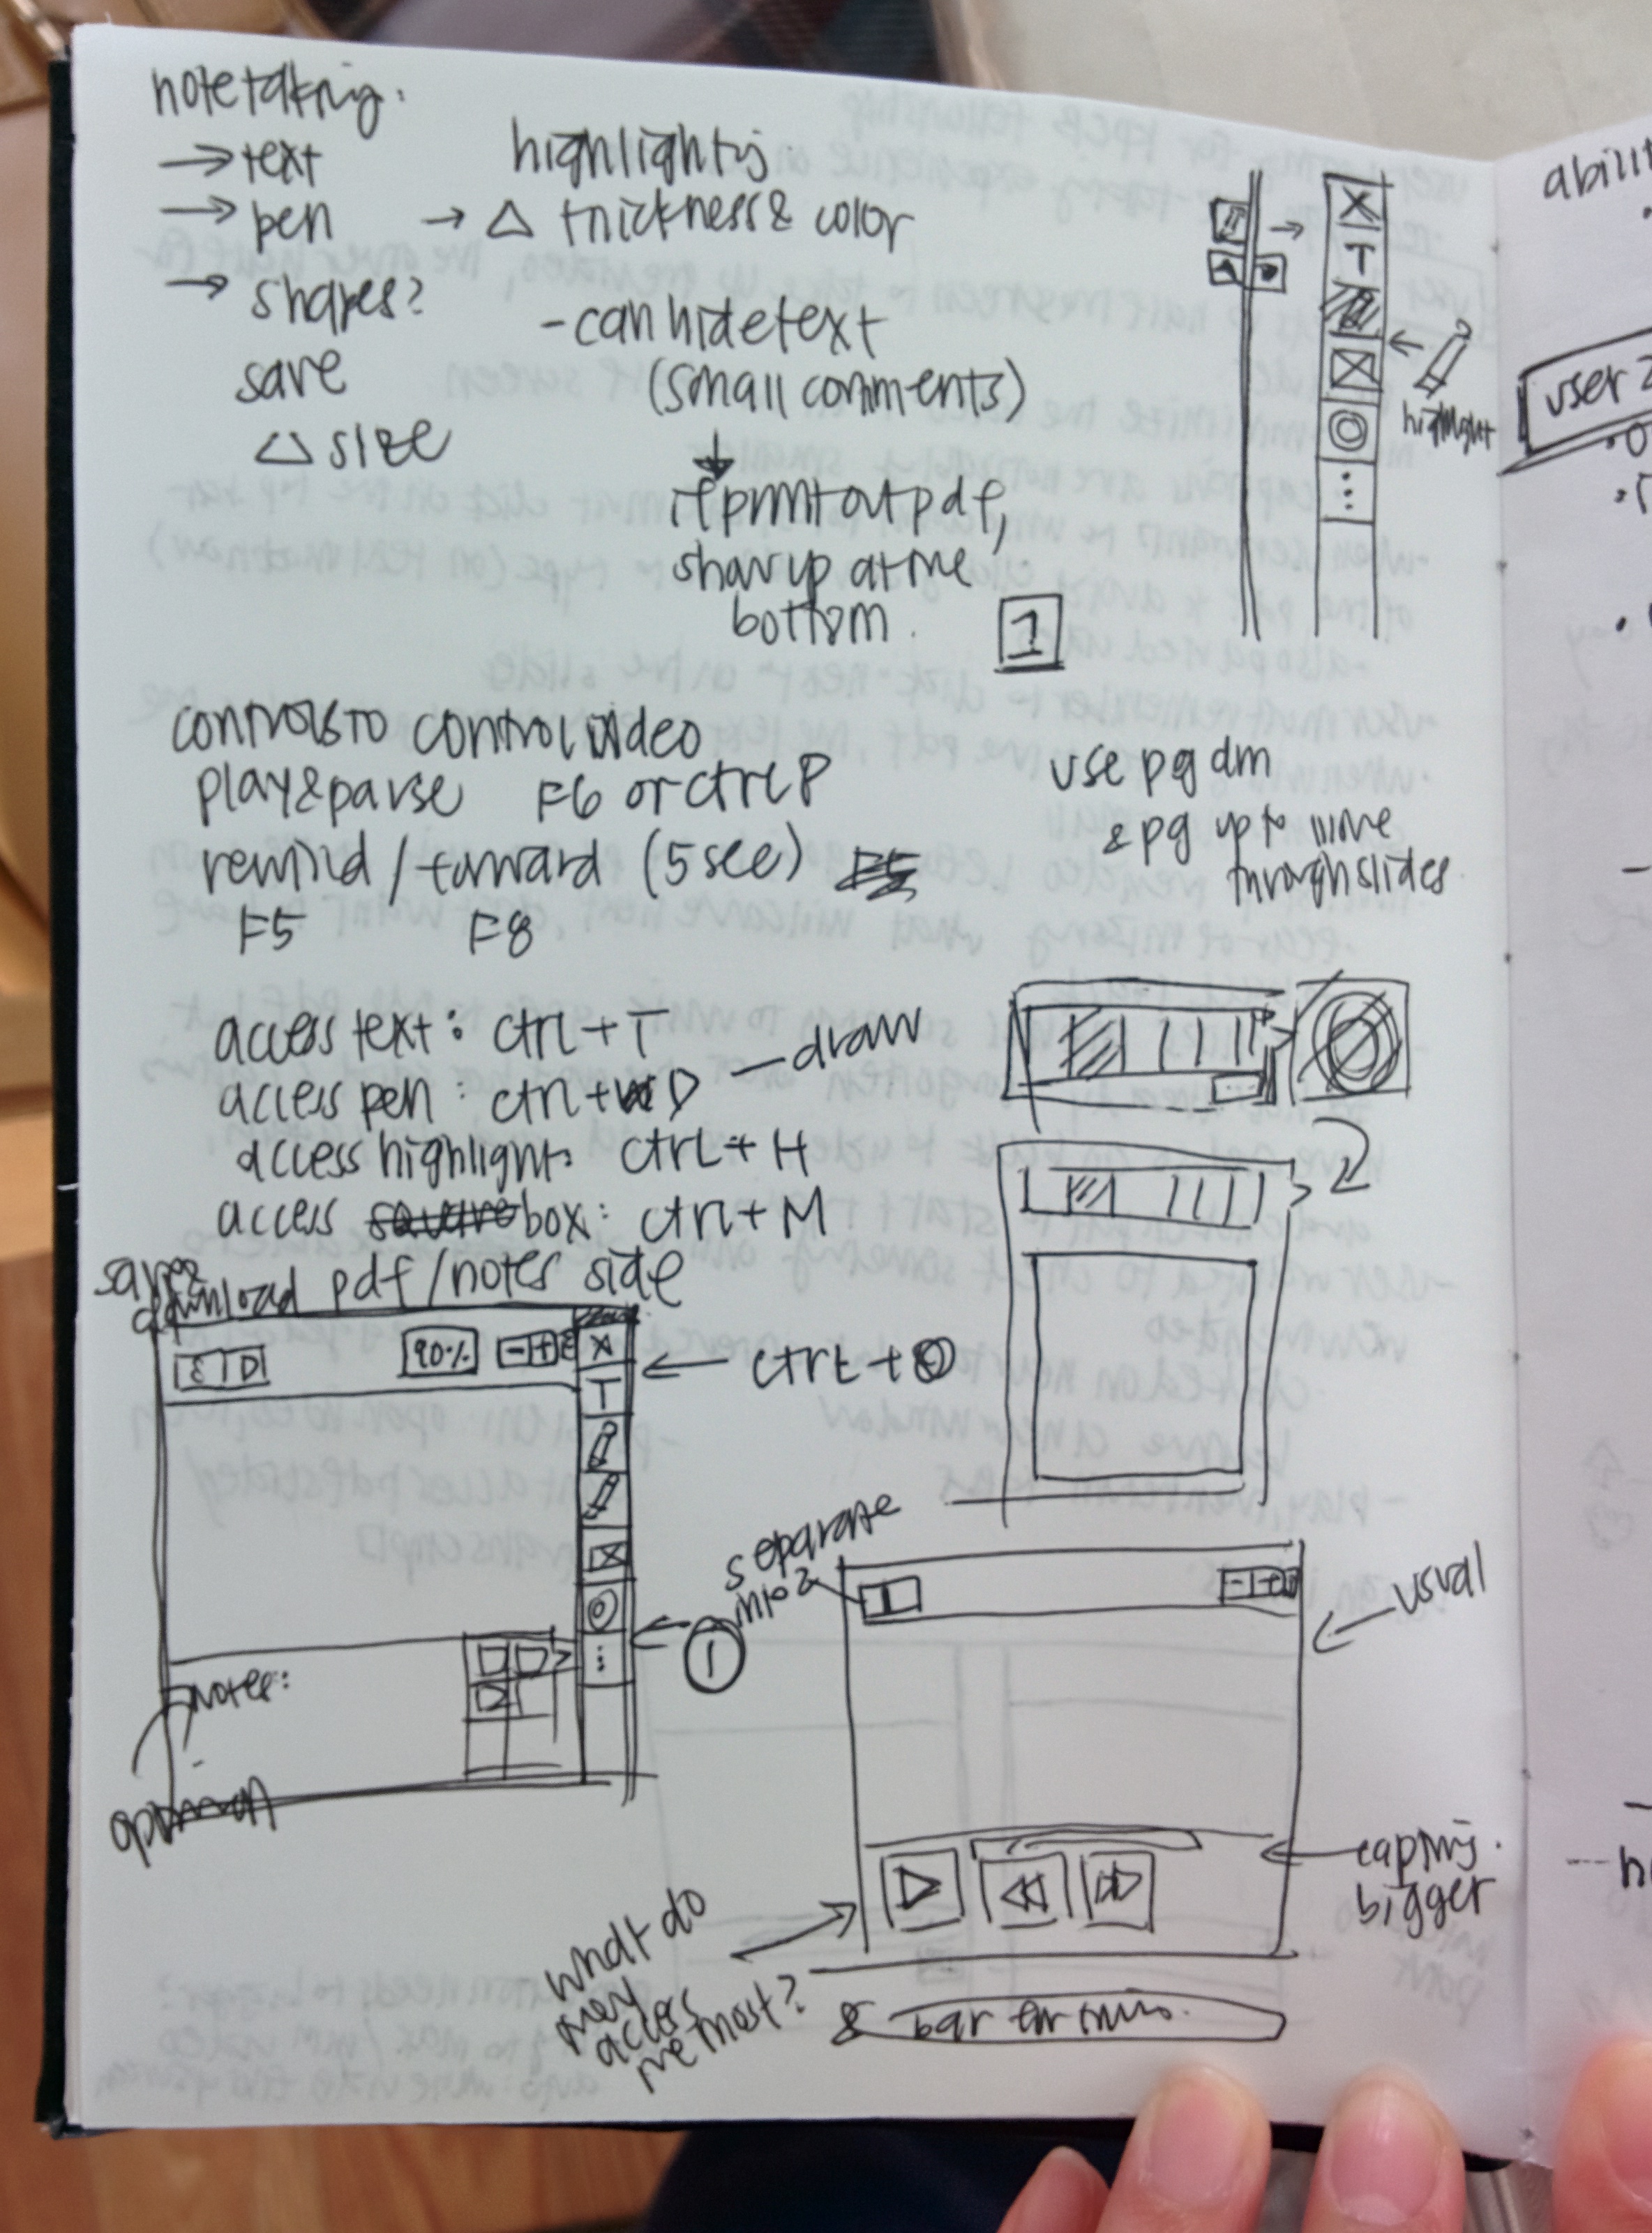 notetaking:
→ text
→ pen → △ thickness & color
→ shapes?
save
△ size
highlighting
- can hide text
(small comments)
↓
if print out pdf,
show up at the
bottom.
1
X
T
highlight
controls to control video
play & pause F6 or ctrl P
rewind / forward (5 sec)
F5 F8
use pg dn
& pg up to move
through slides
access text: ctrl + T
access pen: ctrl + D — draw
access highlight: ctrl + H
access box: ctrl + M
save &
download pdf/notes side
90% - +
X
T
← ctrl + O
① 
notes:
separate
into 2
- +
usual
capting.
bigger
what do
they
access
the most?
& bar for this.
abilit
user 2